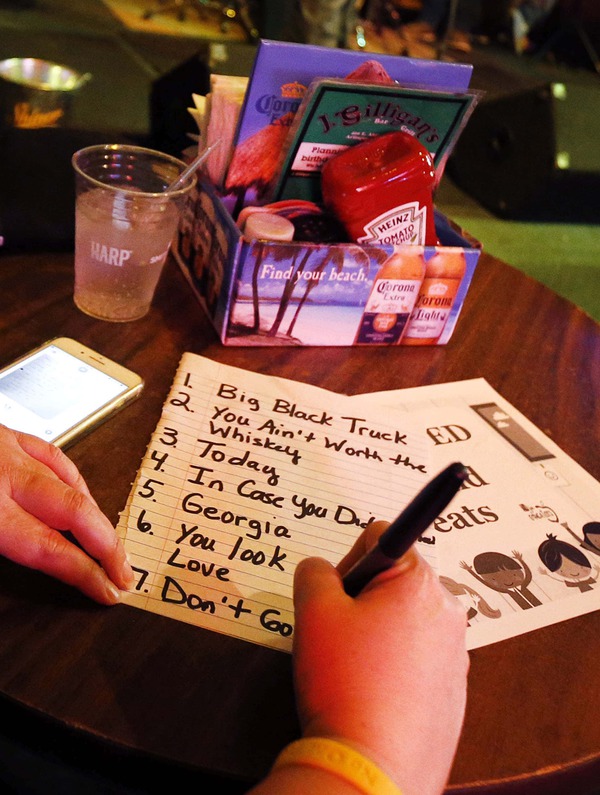 Corona
Ex
J. Gilligan's
Bar
Grill
Plannin
birthd
HEINZ
TOMATO
HARP
Find your beach.
Corona
Extra
Corona
Light
1. Big Black Truck
2. You Ain't Worth the
Whiskey
3. Today
4. In Case You Did
5. Georgia
6. You look
Love
7. Don't Go
ED
eats